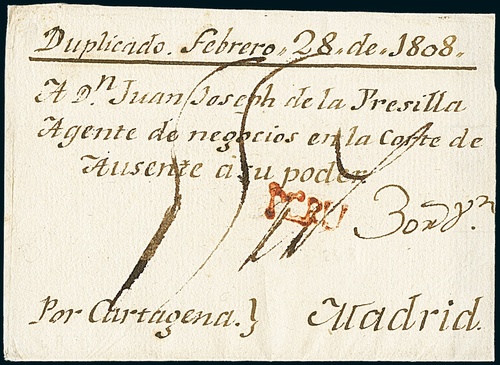 Duplicado. Febrero, 28, de, 1808.
A D.n Juan Joseph de la Presilla
Agente de negocios en la Corte de
Ausente á su poder
PERU
Por Cartagena.}
Madrid.